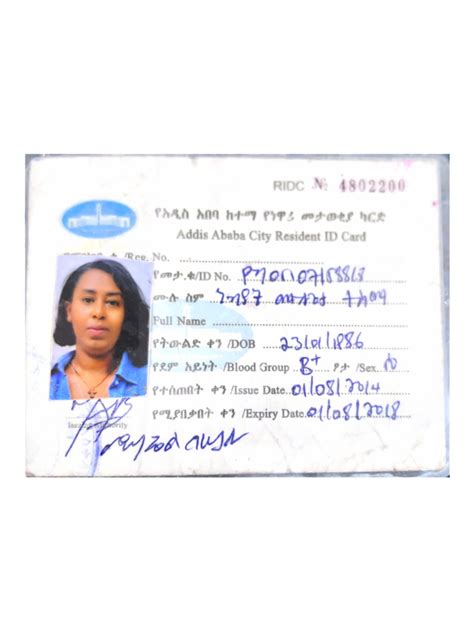 RIDC № 4802200
የአዲስ አበባ ከተማ የነዋሪ መታወቂያ ካርድ
Addis Ababa City Resident ID Card
/Reg. No.
የመታ.ቁ/ID No.
ሙሉ ስም
Full Name
የትውልድ ቀን /DOB 23/01/1986
የደም አይነት /Blood Group B+ ፆታ /Sex ሴ
የተሰጠበት ቀን /Issue Date 01/08/2014
የሚያበቃበት ቀን /Expiry Date 01/08/2018
Issuing Authority